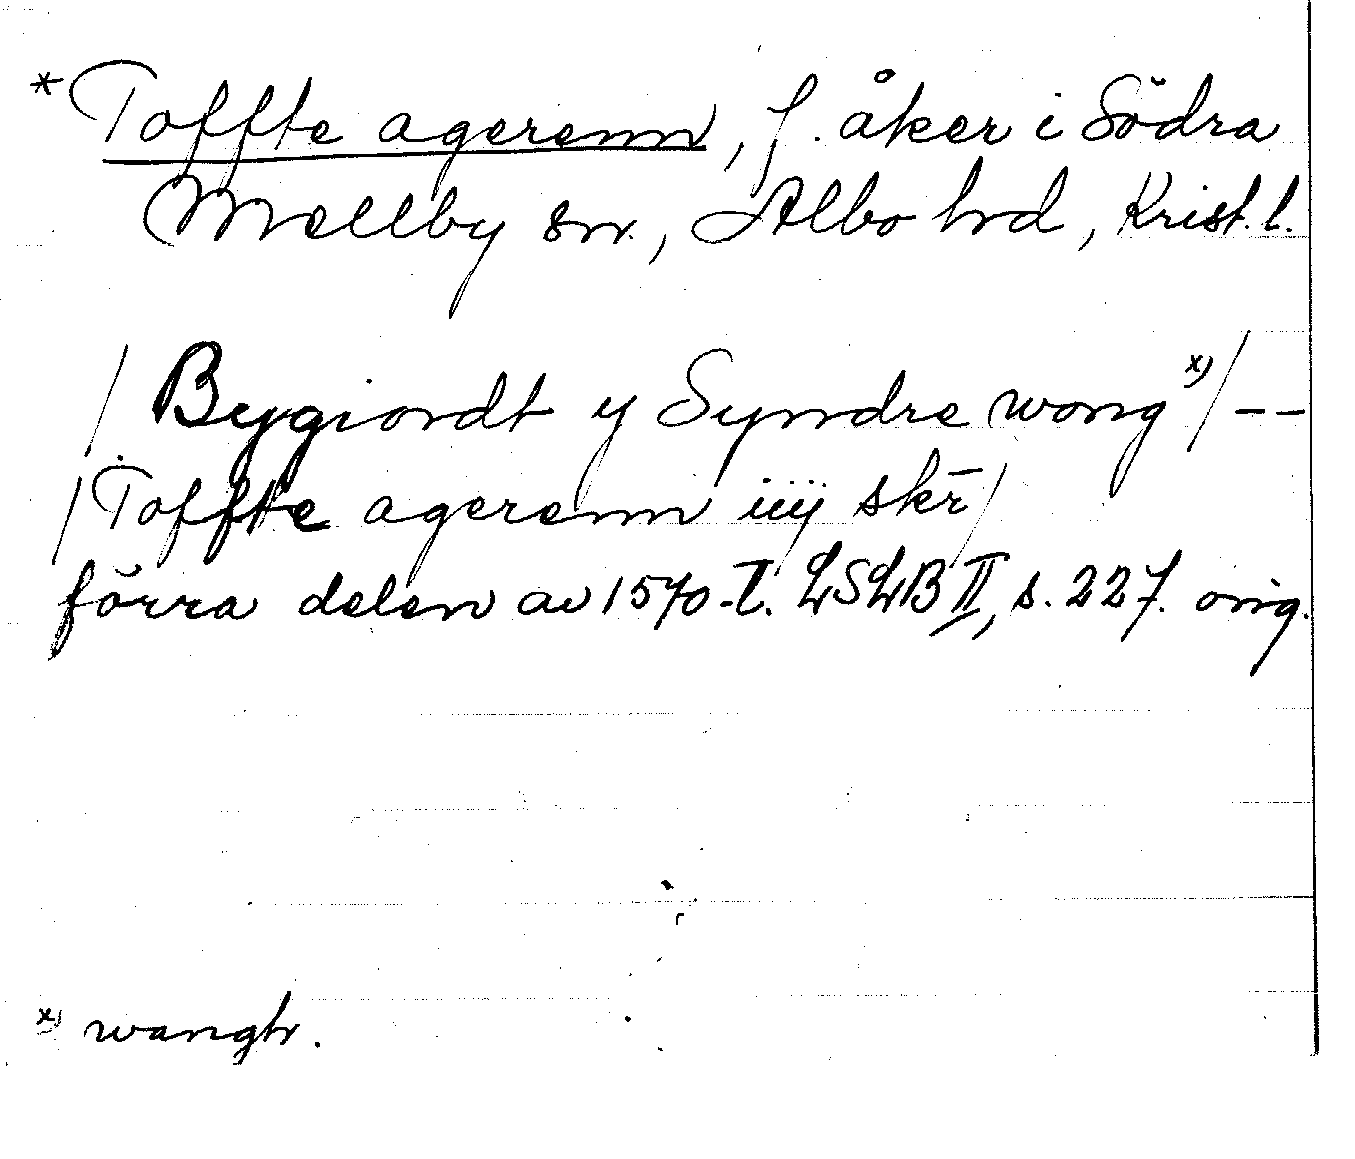 * Toffte agerenn, f. åker i Södra
Mellby sn., Albo hd, Krist. l.
/ Bygiordt y Syndre wong x) / --
/ Toffte agerenn iiij skr̄ /
förra delen av 1570-t. LSLB II, s. 227. orig.
x) wangh.